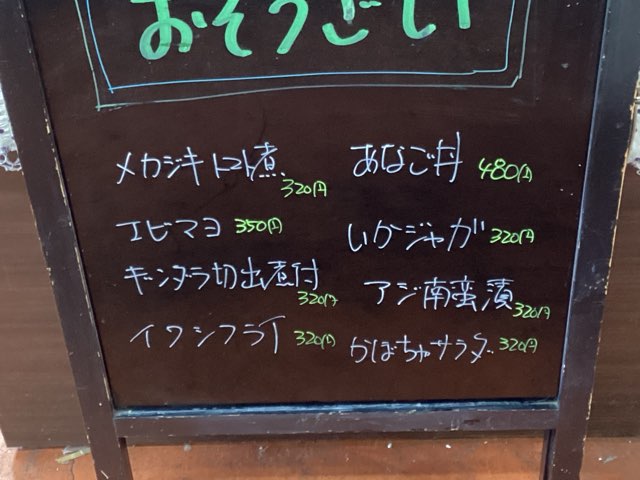 おそうざい
メカジキトマト煮 320円
エビマヨ 350円
ギンダラ切出煮付 320円
イワシフライ 320円
あなご丼 480円
いかジャガ 320円
アジ南蛮漬 320円
かぼちゃサラダ 320円